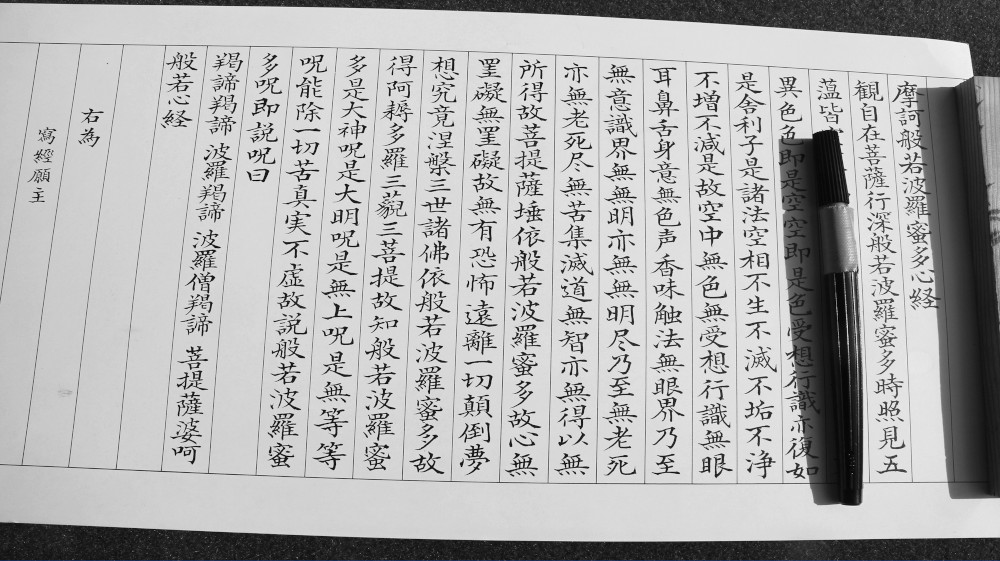 摩訶般若波羅蜜多心経
観自在菩薩行深般若波羅蜜多時照見五
薀皆
異色色即是空空即是色受想行識亦復如
是舎利子是諸法空相不生不滅不垢不浄
不増不減是故空中無色無受想行識無眼
耳鼻舌身意無色声香味触法無眼界乃至
無意識界無無明亦無無明尽乃至無老死
亦無老死尽無苦集滅道無智亦無得以無
所得故菩提薩埵依般若波羅蜜多故心無
罣礙無罣礙故無有恐怖遠離一切顛倒夢
想究竟涅槃三世諸佛依般若波羅蜜多故
得阿耨多羅三藐三菩提故知般若波羅蜜
多是大神呪是大明呪是無上呪是無等等
呪能除一切苦真実不虚故説般若波羅蜜
多呪即説呪曰
羯諦羯諦 波羅羯諦 波羅僧羯諦 菩提薩婆呵
般若心経
右為
寫經願主